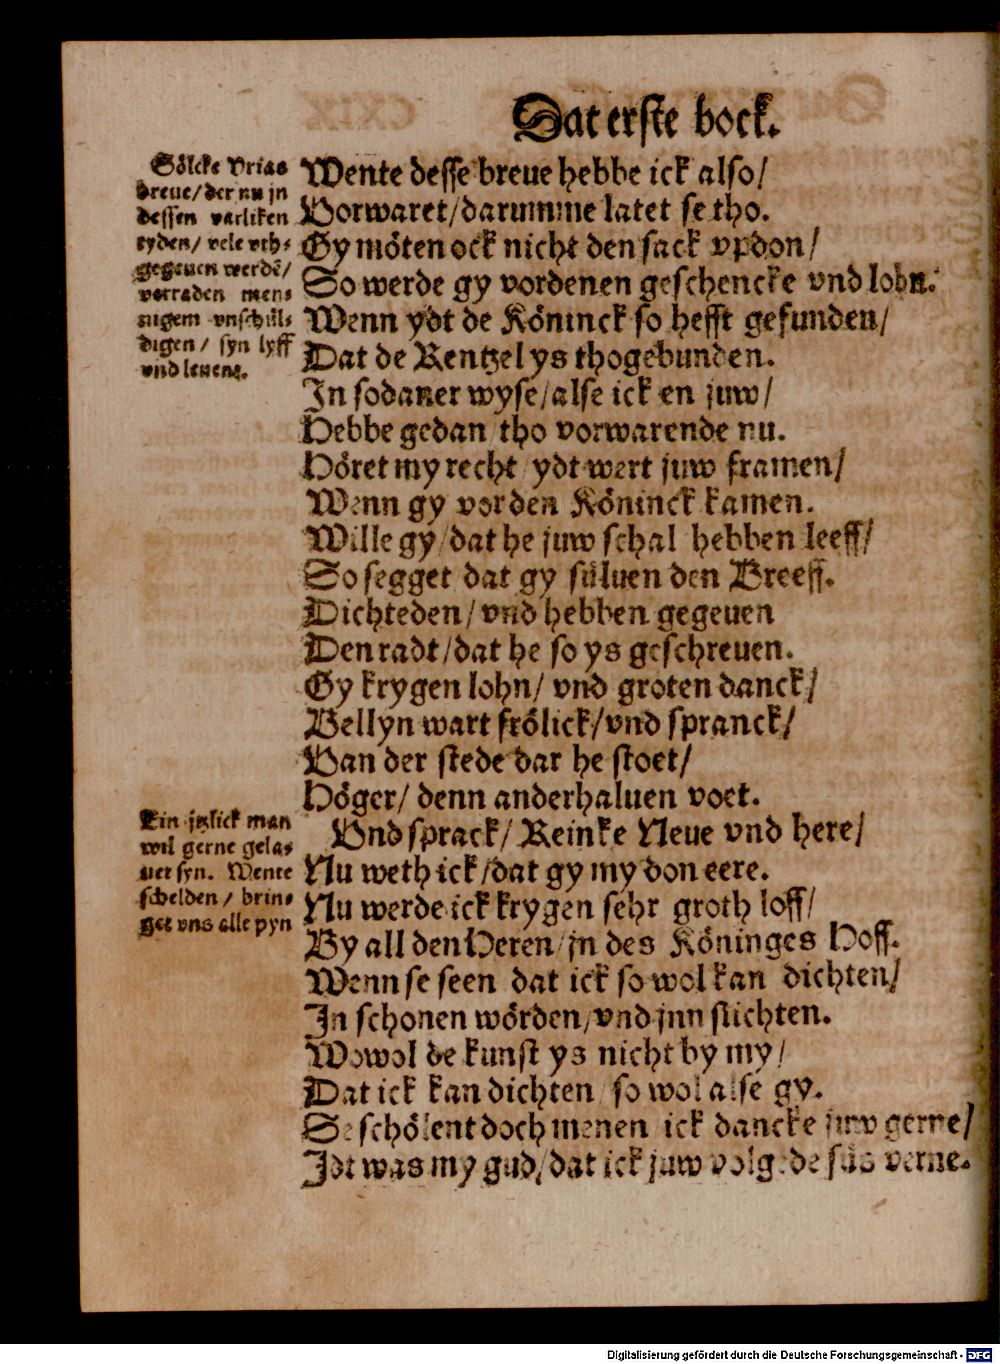 Dat erste boek.
Sölcke Vrias
breue/der nu jn
dessen varliken
tyden/ vele vth-
gegeuen werdē/
vorraden men-
nigem vnschül-
digen/ syn lyff
vnd leuent.
Wente desse breue hebbe ick also/
Vorwaret/darumme latet se tho.
Gy möten ock nicht den sack vpdon/
So werde gy vordenen geschencke vnd lohn.
Wenn ydt de Köninck so hefft gefunden/
Dat de Rentzel ys thogebunden.
In sodaner wyse/alse ick en juw/
Hebbe gedan/tho vorwarende nu.
Höret my recht/ydt wert juw framen/
Wenn gy vor den Köninck kamen.
Wille gy/dat he juw schal hebben leeff/
So segget dat gy süluen den Breeff.
Dichteden/vnd hebben gegeuen
Den radt/dat he so ys geschreuen.
Gy krygen lohn/ vnd groten danck/
Bellyn wart frölick/vnd spranck/
Van der stede dar he stoet/
Höger/ denn anderhaluen voet.
Ein jslick man
wil gerne gela-
uet syn. Wente
schelden/ brin-
get vns alle pyn
Vnd sprack/ Reinke Neue vnd here/
Nu weth ick/dat gy my don eere.
Nu werde ick krygen sehr groth loff/
By all den Heren/jn des Köninges Hoff.
Wenn se seen dat ick so wol kan dichten/
In schonen wörden/vnd jnn slichten.
Wowol de kunst ys nicht by my/
Dat ick kan dichten/so wol alse gy.
Se schölent doch menen ick dancke juw gerne/
Idt was my gud/dat ick juw volgede süs verne.
Digitalisierung gefördert durch die Deutsche Forschungsgemeinschaft - DFG